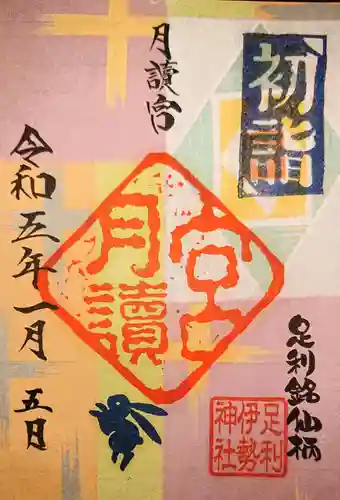 初詣
月讀宮
令和五年一月五日
月讀宮
足利銘仙柄
足利
伊勢
神社